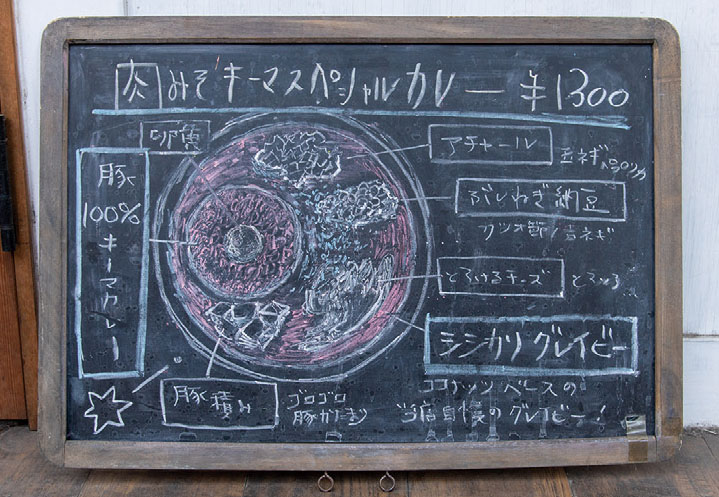 肉みそキーマスペシャルカレー ¥1300
卵黄
豚100%キーマカレー
アチャール
玉ネギ パプリカ
ぶしねぎ納豆
カツオ節/青ネギ
とろけるチーズ
とろ〜る…
シシカリグレイビー
ココナッツベースの
当店自慢のグレイビー!
豚積み
ゴロゴロ